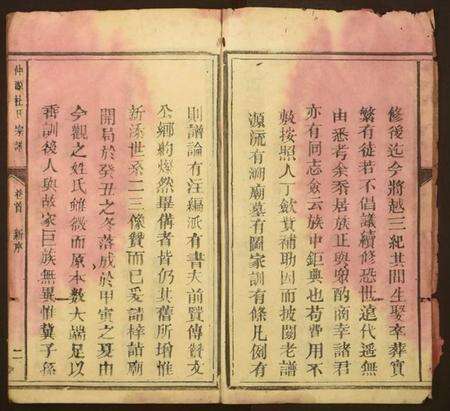 修後迄今將越三紀其間生娶卒葬實
繁有徒若不倡議續修恐世遠代遥無
由悉考余忝居族正與衆酌商幸諸君
亦有同志僉云族中鉅典也苟費用不
敷按照人丁歛其補助因而披閱老譜
源流有溯廟墓有圖家訓有條凡例有
則譜論有汪編派有書夫前賢傳贊文
公鄉約燦然畢備者皆仍其舊所增惟
新添世系二三像贊而已爰請梓詣廟
開局於癸丑之冬落成於甲寅之夏由
今觀之姓氏雖微而原本數大端足以
垂訓後人與故家巨族無異惟冀子孫
杜氏宗譜 卷首 新序 二